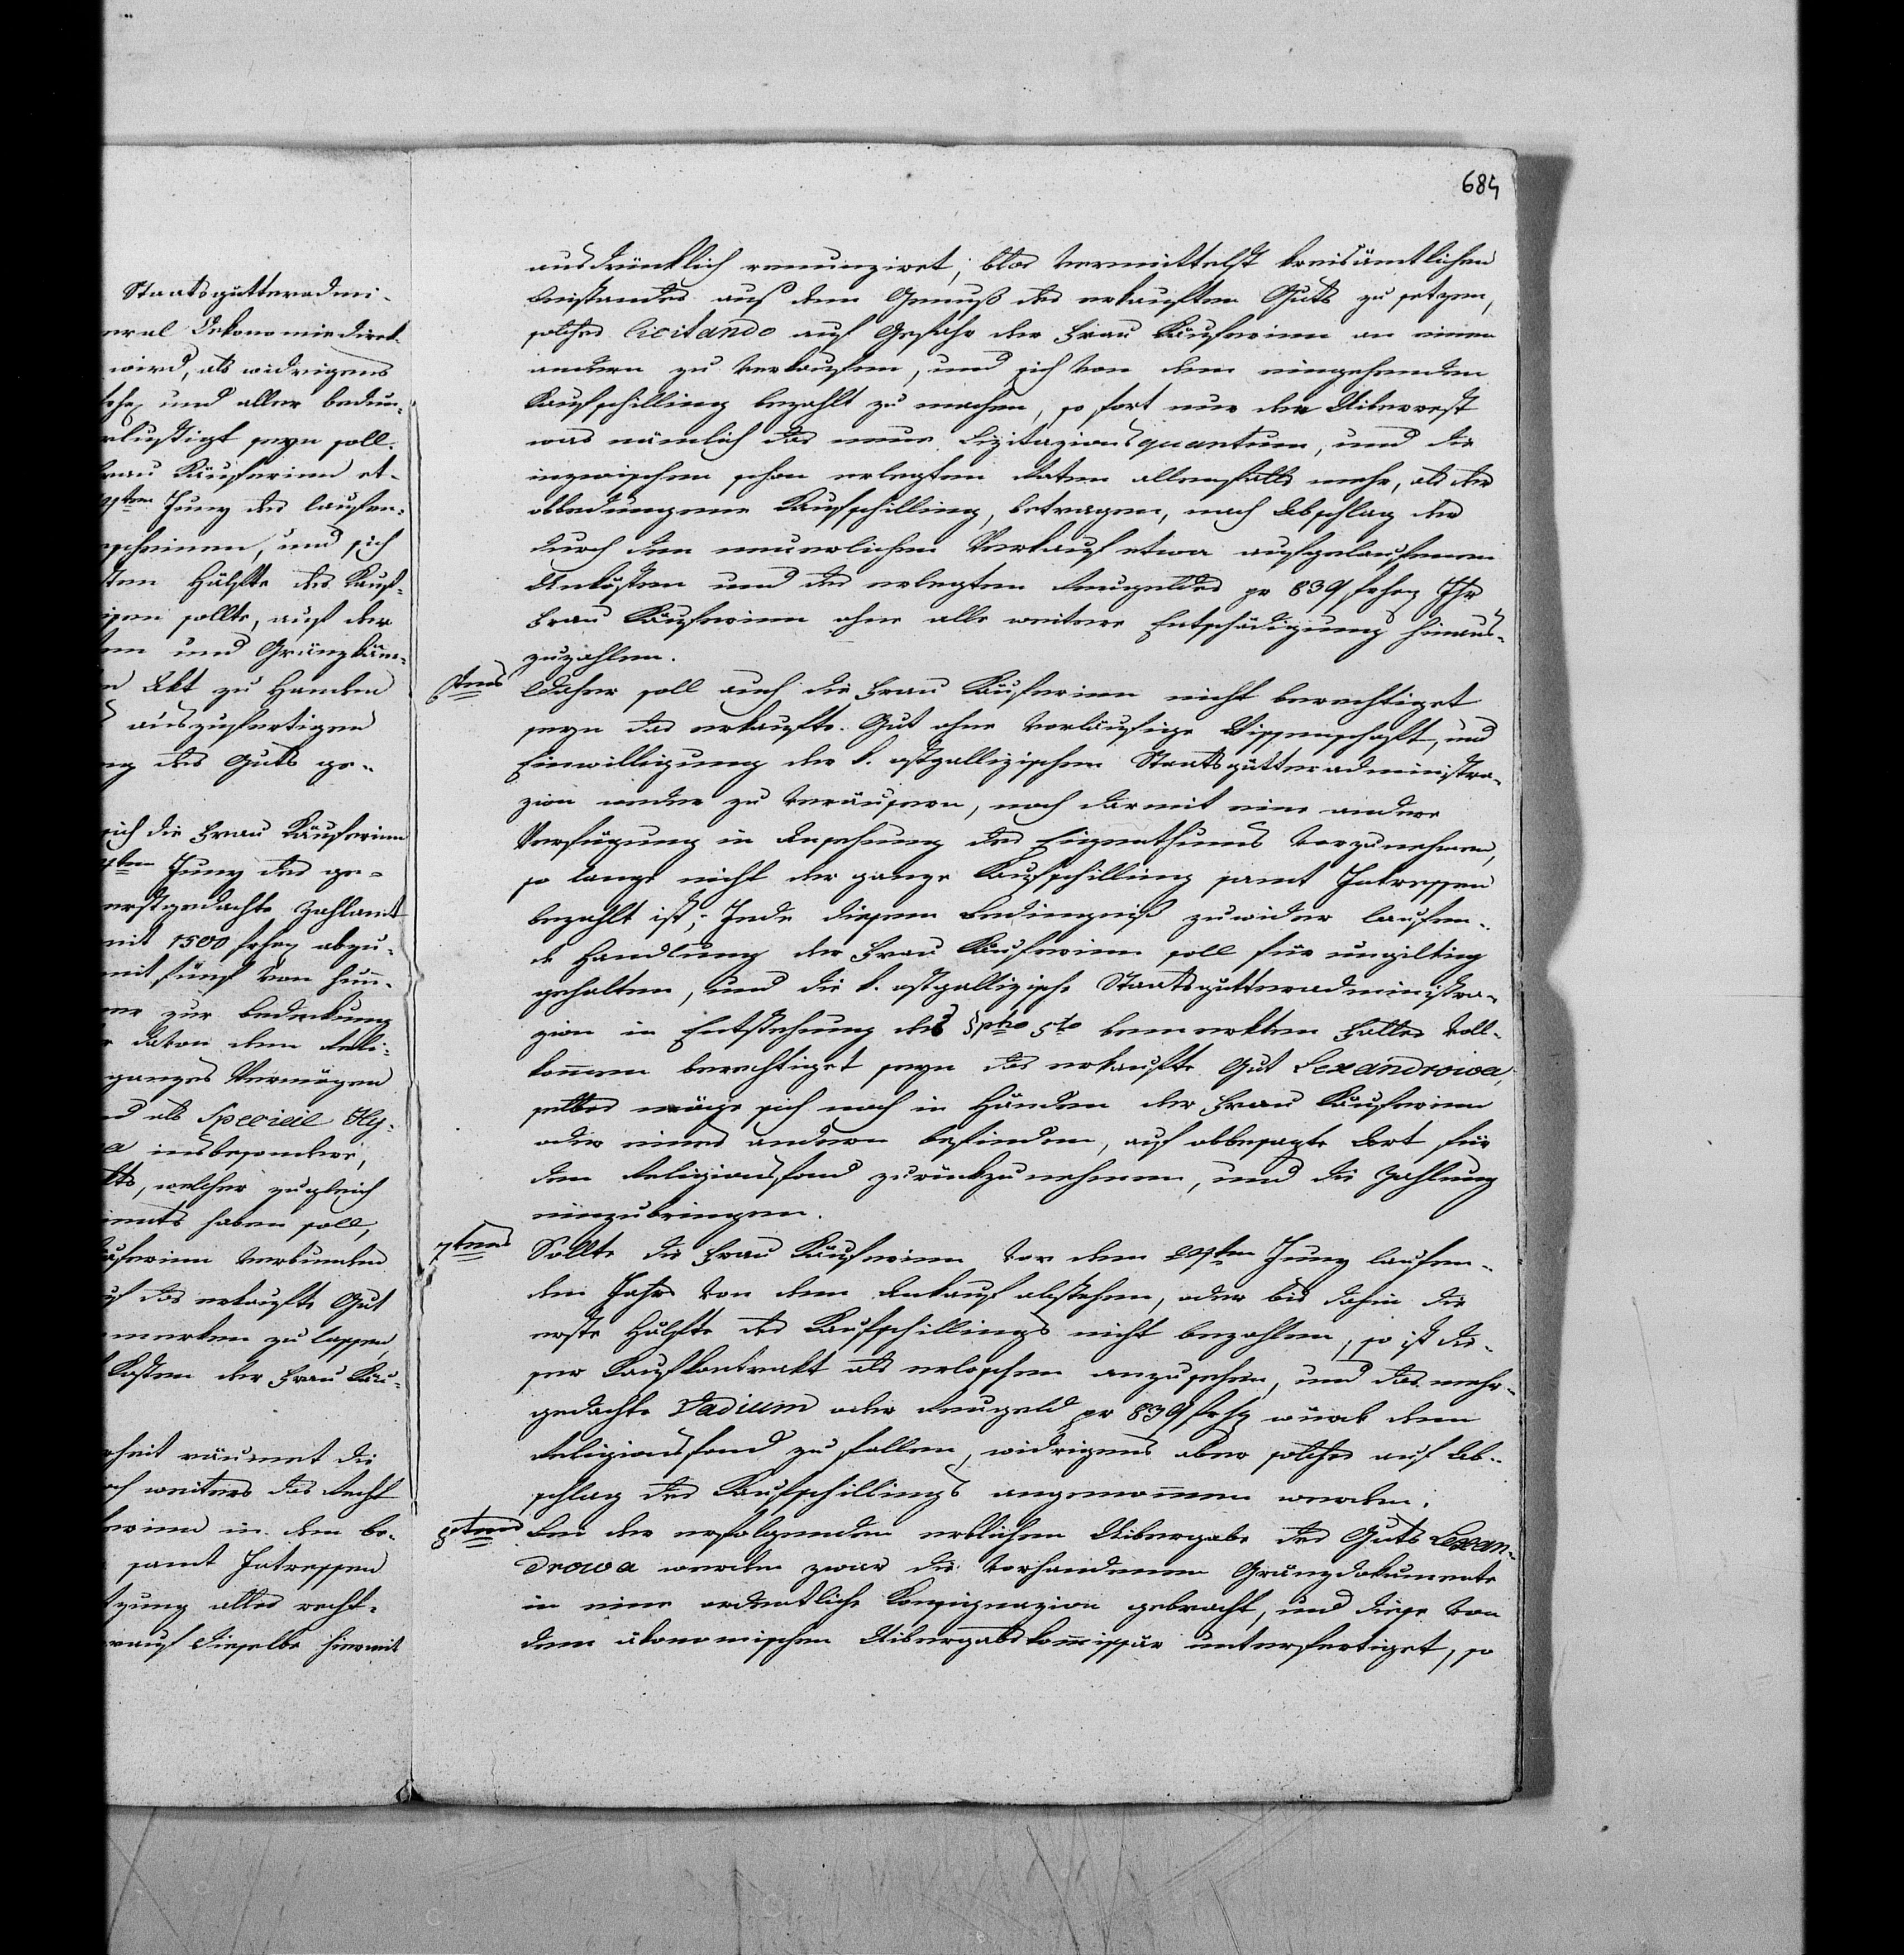 684
Staatsgütteradmi-
neral Oekonomiedirek-
wird, als widrigens
und aller bedun-
rlustigt seyn soll.
Frau Käuferinn et-
ten Juny des laufen-
scheinen, und sich
sten Hälfte des Kauf-
sollte, aus der
und Gränzkäm-
Akt zu Handen
auszufertigen
des Guts ge-
sich die Frau Käuferinn
ten Juny des ge-
erstgedachte Zahlamt
mit 1500 frhz abzu-
mit fünf von hun-
zur Bedeckung
davon dem Reli-
ganzes Vermögen
als Speciele Hy-
a insbesondere,
welcher zugleich
haben soll,
Käuferinn verbunden
auf das erkaufte Gut
merken zu lassen
Kosten der Frau Käu-
rheit räumet die
och weiters das Recht
ferinn in dem be-
samt Intressen
tzung alles recht-
rauf dieselbe hiermit
ausdrücklich renunziret; blos vermittelst kreisämtlichen
Beistandes aus dem Genuß des erkauften Guts zu setzen,
solches licitando auf Gefahr der Frau Käuferinn an einen
andern zu verkaufen, und sich von dem eingehenden
Kaufschilling bezahlt zu machen, so fort nur den Uiberrest
was nämlich das neue Lizitazionsquantum, und die
inzwischen schon erlegten Raten allenfalls mehr, als der
abbedungene Kaufschilling, betragen, nach Abschlag der
durch den neuerlichen Verkauf etwa aufgelaufenen
Unkösten und des erlegten Reugeldes pr 839 frhz Ihr
Frau Käuferinn ohne alle weitere Entschädigung hinaus-
zuzahlen.
6tens Daher soll auch die Frau Käuferinn nicht berechtiget
seyn das erkaufte Gut ohne vorläufige Wissenschaft, und
Einwilligung der k. ostgallizischen Staatsgütteradministra-
zion weder zu veräusern, noch darmit eine andere
Verfügung in Ansehung des Eigenthums vorzunehmen,
so lange nicht der ganze Kaufschilling samt Intressen
bezahlt ist; Jede diesem Bedingniß zuwider laufen-
de Handlung der Frau Käuferinn soll für ungiltig
gehalten, und die k. ostgallizische Staatsgütteradministra-
zion in Entstehung des §pho 5to bemerkten Falles voll-
kommen berechtiget seyn das erkaufte Gut Lexandrowa,
selbes möge sich noch in Händen der Frau Käuferinn
oder eines andern befinden, auf obbesagte Art für
den Religionsfond zurückzunehmen, und die Zahlung
einzubringen.
7tens Sollte die Frau Käuferinn vor dem 24ten Juny laufen-
den Jahrs von dem Ankauf abstehen, oder bis dahin die
erste Hälfte des Kaufschillings nicht bezahlen, so ist die-
ser Kaufkontrakt als erloschen anzusehen, und das mehr-
gedachte Vadium oder Reugeld pr 839 frhz würde dem
Religionsfond zu fallen, widrigens aber solches auf Ab-
schlag des Kaufschillings angenommen werden.
8tens Bei der erfolgenden erblichen Uibergabe des Guts Lexan-
drowa werden zwar die vorhandenen Gränzdokumente
in eine ordentliche Konsignazion gebracht, und diese von
dem ökonomischen Uibergabskommissär unterfertiget, so